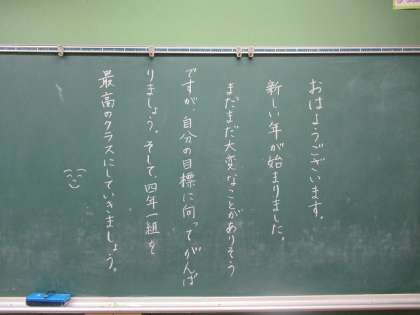 おはようございます。
新しい年が始まりました。
まだまだ大変なことがありそう
ですが、自分の目標に向ってがんば
りましょう。そして、四年一組を
最高のクラスにしていきましょう。